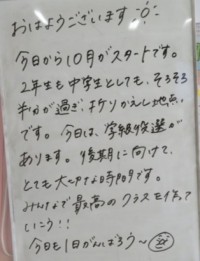 おはようございます
今日から10月がスタートです。
2年生も中学生としても、そろそろ
半分が過ぎ、折り返し地点
です。今日は、学級役選が
あります。後期に向けて、
とても大切な時間です。
みんなで最高のクラスを作って
いこう!!
今日も1日がんばろう〜